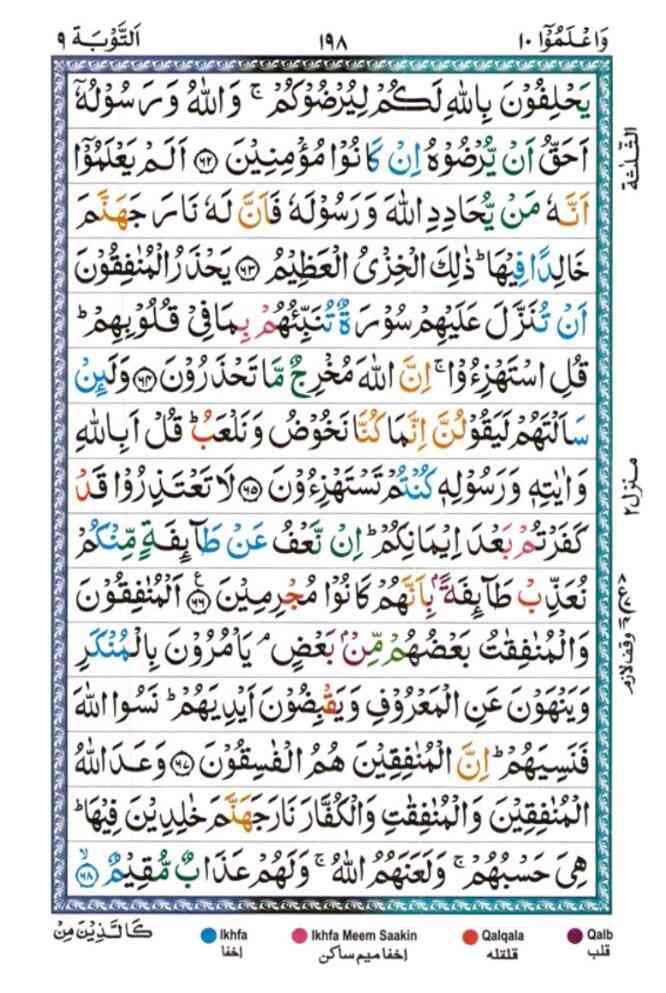 وَاعْلَمُوْۤا ١٠
١٩٨
اَلتَّوْبَة ٩
يَحْلِفُوْنَ بِاللّٰهِ لَكُمْ لِيُرْضُوْكُمْ ۚ وَاللّٰهُ وَرَسُوْلُهٗۤ
اَحَقُّ اَنْ يُّرْضُوْهُ اِنْ كَانُوْا مُؤْمِنِيْنَ ﴿٦٢﴾ اَلَمْ يَعْلَمُوْۤا
اَنَّهٗ مَنْ يُّحَادِدِ اللّٰهَ وَرَسُوْلَهٗ فَاَنَّ لَهٗ نَارَ جَهَنَّمَ
خَالِدًا فِيْهَا ؕ ذٰلِكَ الْخِزْىُ الْعَظِيْمُ ﴿٦٣﴾ يَحْذَرُ الْمُنٰفِقُوْنَ
اَنْ تُنَزَّلَ عَلَيْهِمْ سُوْرَةٌ تُنَبِّئُهُمْ بِمَا فِىْ قُلُوْبِهِمْ ؕ
قُلِ اسْتَهْزِءُوْا ۚ اِنَّ اللّٰهَ مُخْرِجٌ مَّا تَحْذَرُوْنَ ﴿٦٤﴾ وَلَىِٕنْ
سَاَلْتَهُمْ لَيَقُوْلُنَّ اِنَّمَا كُنَّا نَخُوْضُ وَنَلْعَبُ ؕ قُلْ اَبِاللّٰهِ
وَاٰيٰتِهٖ وَرَسُوْلِهٖ كُنْتُمْ تَسْتَهْزِءُوْنَ ﴿٦٥﴾ لَا تَعْتَذِرُوْا قَدْ
كَفَرْتُمْ بَعْدَ اِيْمَانِكُمْ ؕ اِنْ نَّعْفُ عَنْ طَآىِٕفَةٍ مِّنْكُمْ
نُعَذِّبْ طَآىِٕفَةًۢ بِاَنَّهُمْ كَانُوْا مُجْرِمِيْنَ ﴿٦٦﴾ اَلْمُنٰفِقُوْنَ
وَالْمُنٰفِقٰتُ بَعْضُهُمْ مِّنْۢ بَعْضٍ ۘ يَاْمُرُوْنَ بِالْمُنْكَرِ
وَيَنْهَوْنَ عَنِ الْمَعْرُوْفِ وَيَقْبِضُوْنَ اَيْدِيَهُمْ ؕ نَسُوا اللّٰهَ
فَنَسِيَهُمْ ؕ اِنَّ الْمُنٰفِقِيْنَ هُمُ الْفٰسِقُوْنَ ﴿٦٧﴾ وَعَدَ اللّٰهُ
الْمُنٰفِقِيْنَ وَالْمُنٰفِقٰتِ وَالْكُفَّارَ نَارَ جَهَنَّمَ خٰلِدِيْنَ فِيْهَا ؕ
هِىَ حَسْبُهُمْ ۚ وَلَعَنَهُمُ اللّٰهُ ۚ وَلَهُمْ عَذَابٌ مُّقِيْمٌ ﴿٦٨﴾
الثلٰثة
منزل ٢
وقف لازم
كَالَّذِيْنَ مِنْ
Ikhfa
Ikhfa Meem Saakin
Qalqala
Qalb
اِخفا
اِخفا میم ساکن
قلقله
قلب